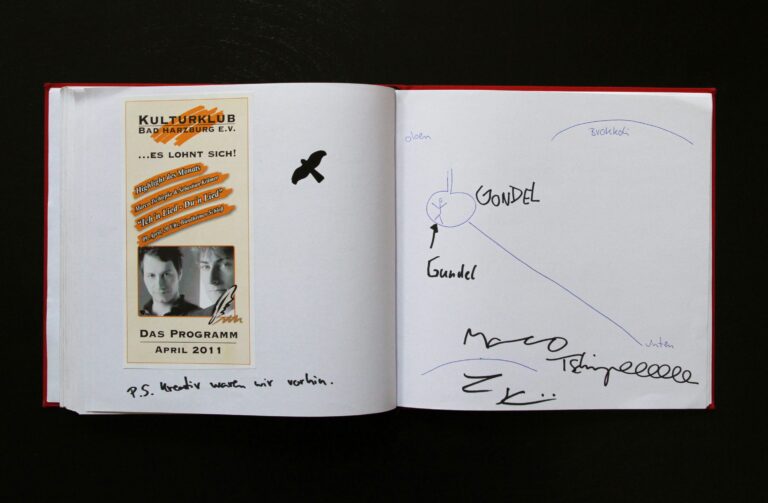 KULTURKLUB
BAD HARZBURG E.V.
...ES LOHNT SICH!
Highlight des Monats
Marco Tschirpke & Sebastian Krämer
"Ich'n Lied - Du'n Lied"
DAS PROGRAMM
APRIL 2011
P.S. Kreativ waren wir vorhin.
oben
Brokkoli
GONDEL
Gundel
Marco
unten